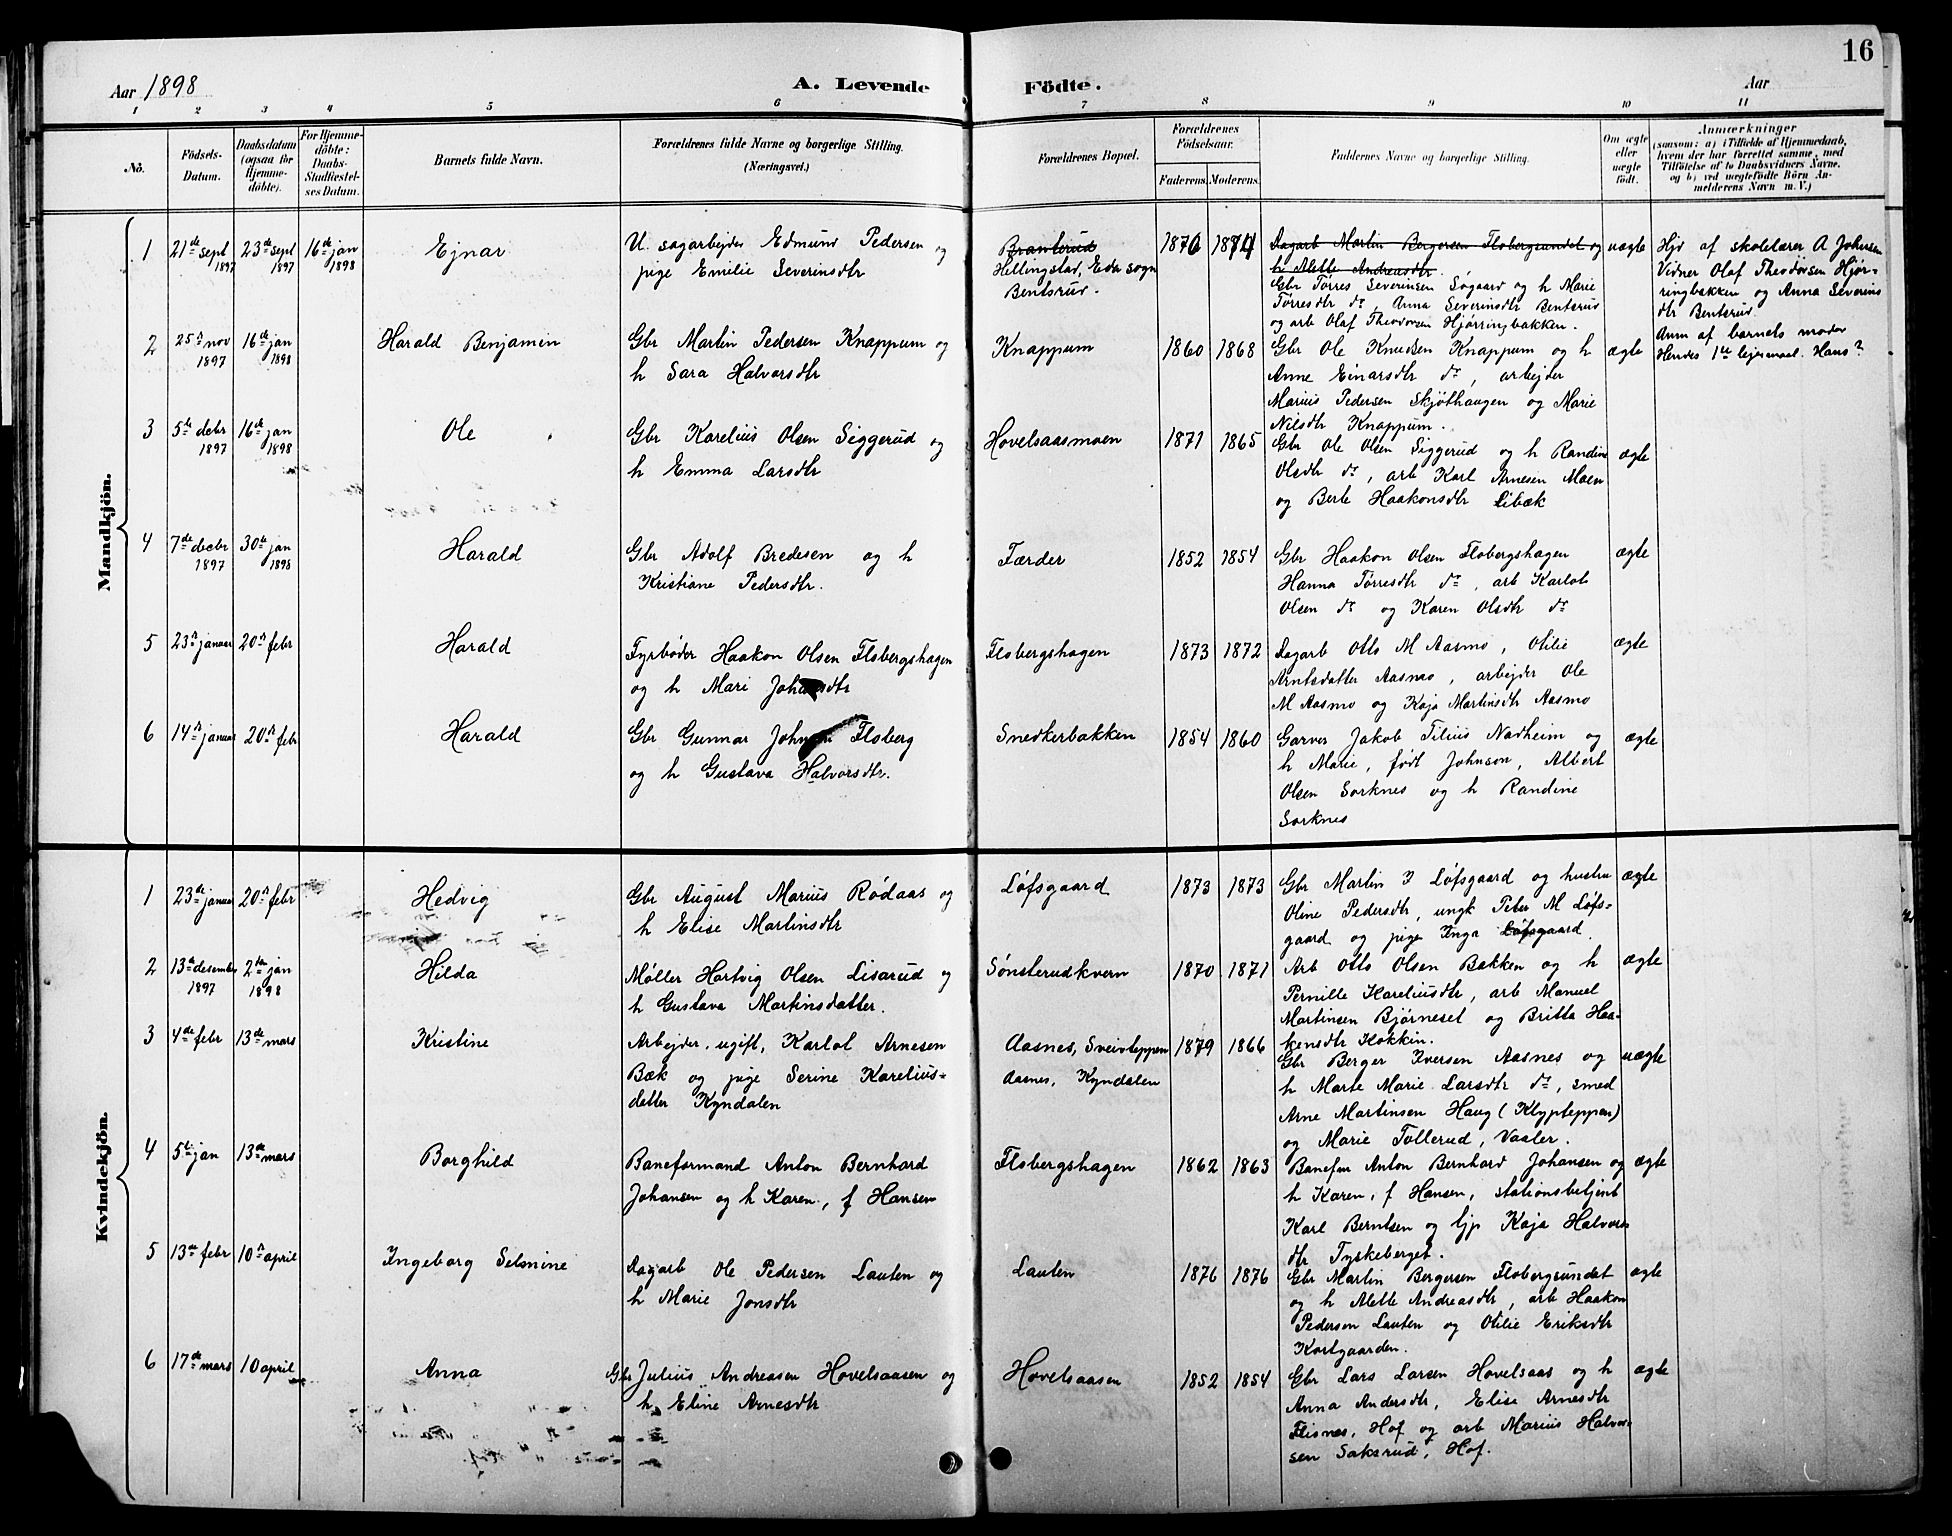 16
Aar 1898
A. Levende Födte.
Aar
1 2 3 4 5 6 7 8 9 10 11
No.
Födsels-Datum.
Daabsdatum (ogsaa for Hjemmedöbte).
For Hjemmedöbte: Daabs-Stadfæstelses Datum.
Barnets fulde Navn.
Forældrenes fulde Navne og borgerlige Stilling.
(Næringsvei.)
Forældrenes Bopæl.
Forældrenes Födselsaar.
Faderens. Moderens.
Faddernes Navne og borgerlige Stilling.
Om ægte eller uægte födt.
Anmærkninger
(saasom: a) i Tilfælde af Hjemmedaab, hvem der har forrettet samme, med Tilföielse af to Daabsvidners Navne, og b) ved uægtefödte Börn Anmelderens Navn m. V.)
Mandkjön.
1 21de sept 1897 23de sept 1897 16de jan 1898 Ejnar
U. sagarbejder Edmund Pedersen og
pige Emilie Severinsdtr
Branterud
Hellingstad, Eda sogn
Bentsrud.
1876 1874
Dagarb Martin Bergersen Flobergsundet og
h Alette Andreasdtr.
Gbr Tørres Severinsen Søgaard og h Marie
Tørresdtr do, Anna Severinsdtr Bentsrud
og arb Olaf Theodorsen Hjørringbakken.
uægte
Hjd af skolelærer A Johnsen
Vidner Olaf Theodorsen Hjør-
ringbakken og Anna Severins
dtr Bentsrud.
Anm af barnets moder
Hendes 1te lejermaal. Hans?
2 25de nov 1897 16de jan 1898 Harald Benjamin
Gbr Martin Pedersen Knappum og
h Sara Halvorsdtr
Knappum 1860 1868
Gbr Ole Knudsen Knappum og h
Anne Einarsdtr do, arbejder
Marius Pedersen Skjøthaugen og Marie
Nilsdtr Knappum.
ægte
3 5te debr 1897 16de jan 1898 Ole
Gbr Karelius Olsen Siggerud og
h Emma Larsdtr
Hovelsaasmoen 1871 1865
Gbr Ole Olsen Siggerud og h Randine
Olsdtr do, arb Karl Arnesen Moen
og Berte Haakonsdtr Libæk
ægte
4 7de debr 1897 30te jan 1898 Harald
Gbr Adolf Bredesen og h
Kristiane Pedersdtr.
Færder 1852 1854
Gbr Haakon Olsen Flobergshagen
Hanna Tørresdtr do, arb Karlot
Olsen do og Karen Olsdtr do
ægte
5 23de januar 20de febr Harald
Fyrbøder Haakon Olsen Flobergshagen
og h Mari Johansdtr
Flobergshagen 1873 1872
Dagarb Otto M Aasmo, Otilie
Arntsdatter Aasmo, arbejder Ole
M Aasmo og Kaja Martinsdtr Aasmo
ægte
6 14de januar 20de febr Harald
Gbr Gunnar Johnsen Floberg
og h Gustava Halvorsdtr.
Snedkerbakken 1854 1860
Garver Jakob Tilius Nadheim og
h Marie, født Johnson, Albert
Olsen Sorknes og h Randine
Sorknes
ægte
Kvindekjön.
1 23de januar 20de febr Hedvig
Gbr August Marius Rødaas og
h Elise Martinsdtr
Løfsgaard 1873 1873
Gbr Martin I Løfsgaard og hustru
Oline Pedersdtr, ungk Peter M Løfs-
gaard og pige Inga Løfsgaard.
ægte
2 13de desember 1897 2den jan 1898 Hilda
Møller Hartvig Olsen Lisarud og
h Gustava Martinsdatter.
Sønsterudkvern 1870 1871
Arb Otto Olsen Bakken og h
Pernille Kareliusdtr, arb Manuel
Martinsen Bjørneset og Britta Haa-
kensdtr Kokkin.
ægte
3 4de febr 13de mars Kristine
Arbejder, ugift, Karlot Arnesen
Bæk og pige Serine Karelius-
datter Kyndalen
Aasnes, Sveivteppen
Aasnes, Kyndalen
1879 1866
Gbr Berger Iversen Aasnes og
h Marte Marie Larsdtr do, smed
Arne Martinsen Haug (Klypteppen)
og Marie Tollerud, Vaaler.
uægte
4 5te jan 13de mars Borghild
Baneformand Anton Bernhard
Johansen og h Karen, f Hansen
Flobergshagen 1862 1863
Banefm Anton Bernhard Johansen og
h Karen, f Hansen, stationsbetjent
Karl Berntsen og tjp Kaja Halvors
dtr Tyskeberget.
ægte
5 13de febr 10de april Ingeborg Selmine
Dagarb Ole Pedersen Lauten og
h Marie Jonsdtr
Lauten 1876 1876
Gbr Martin Bergersen Flobergsundet
og h Alette Andreasdtr, arb Haakon
Pedersen Lauten og Otilie Eriksdtr
Kortgaarden.
ægte
6 17de mars 10 april Anna
Gbr Julius Andreasen Hovelsaasen og
h Eline Arnesdtr
Hovelsaasen 1852 1854
Gbr Lars Larsen Hovelsaas og h
Anna Andersdtr, Elise Arnesdtr
Flisnes, Hof og arb Marius Halvor-
sen Saksrud, Hof.
ægte